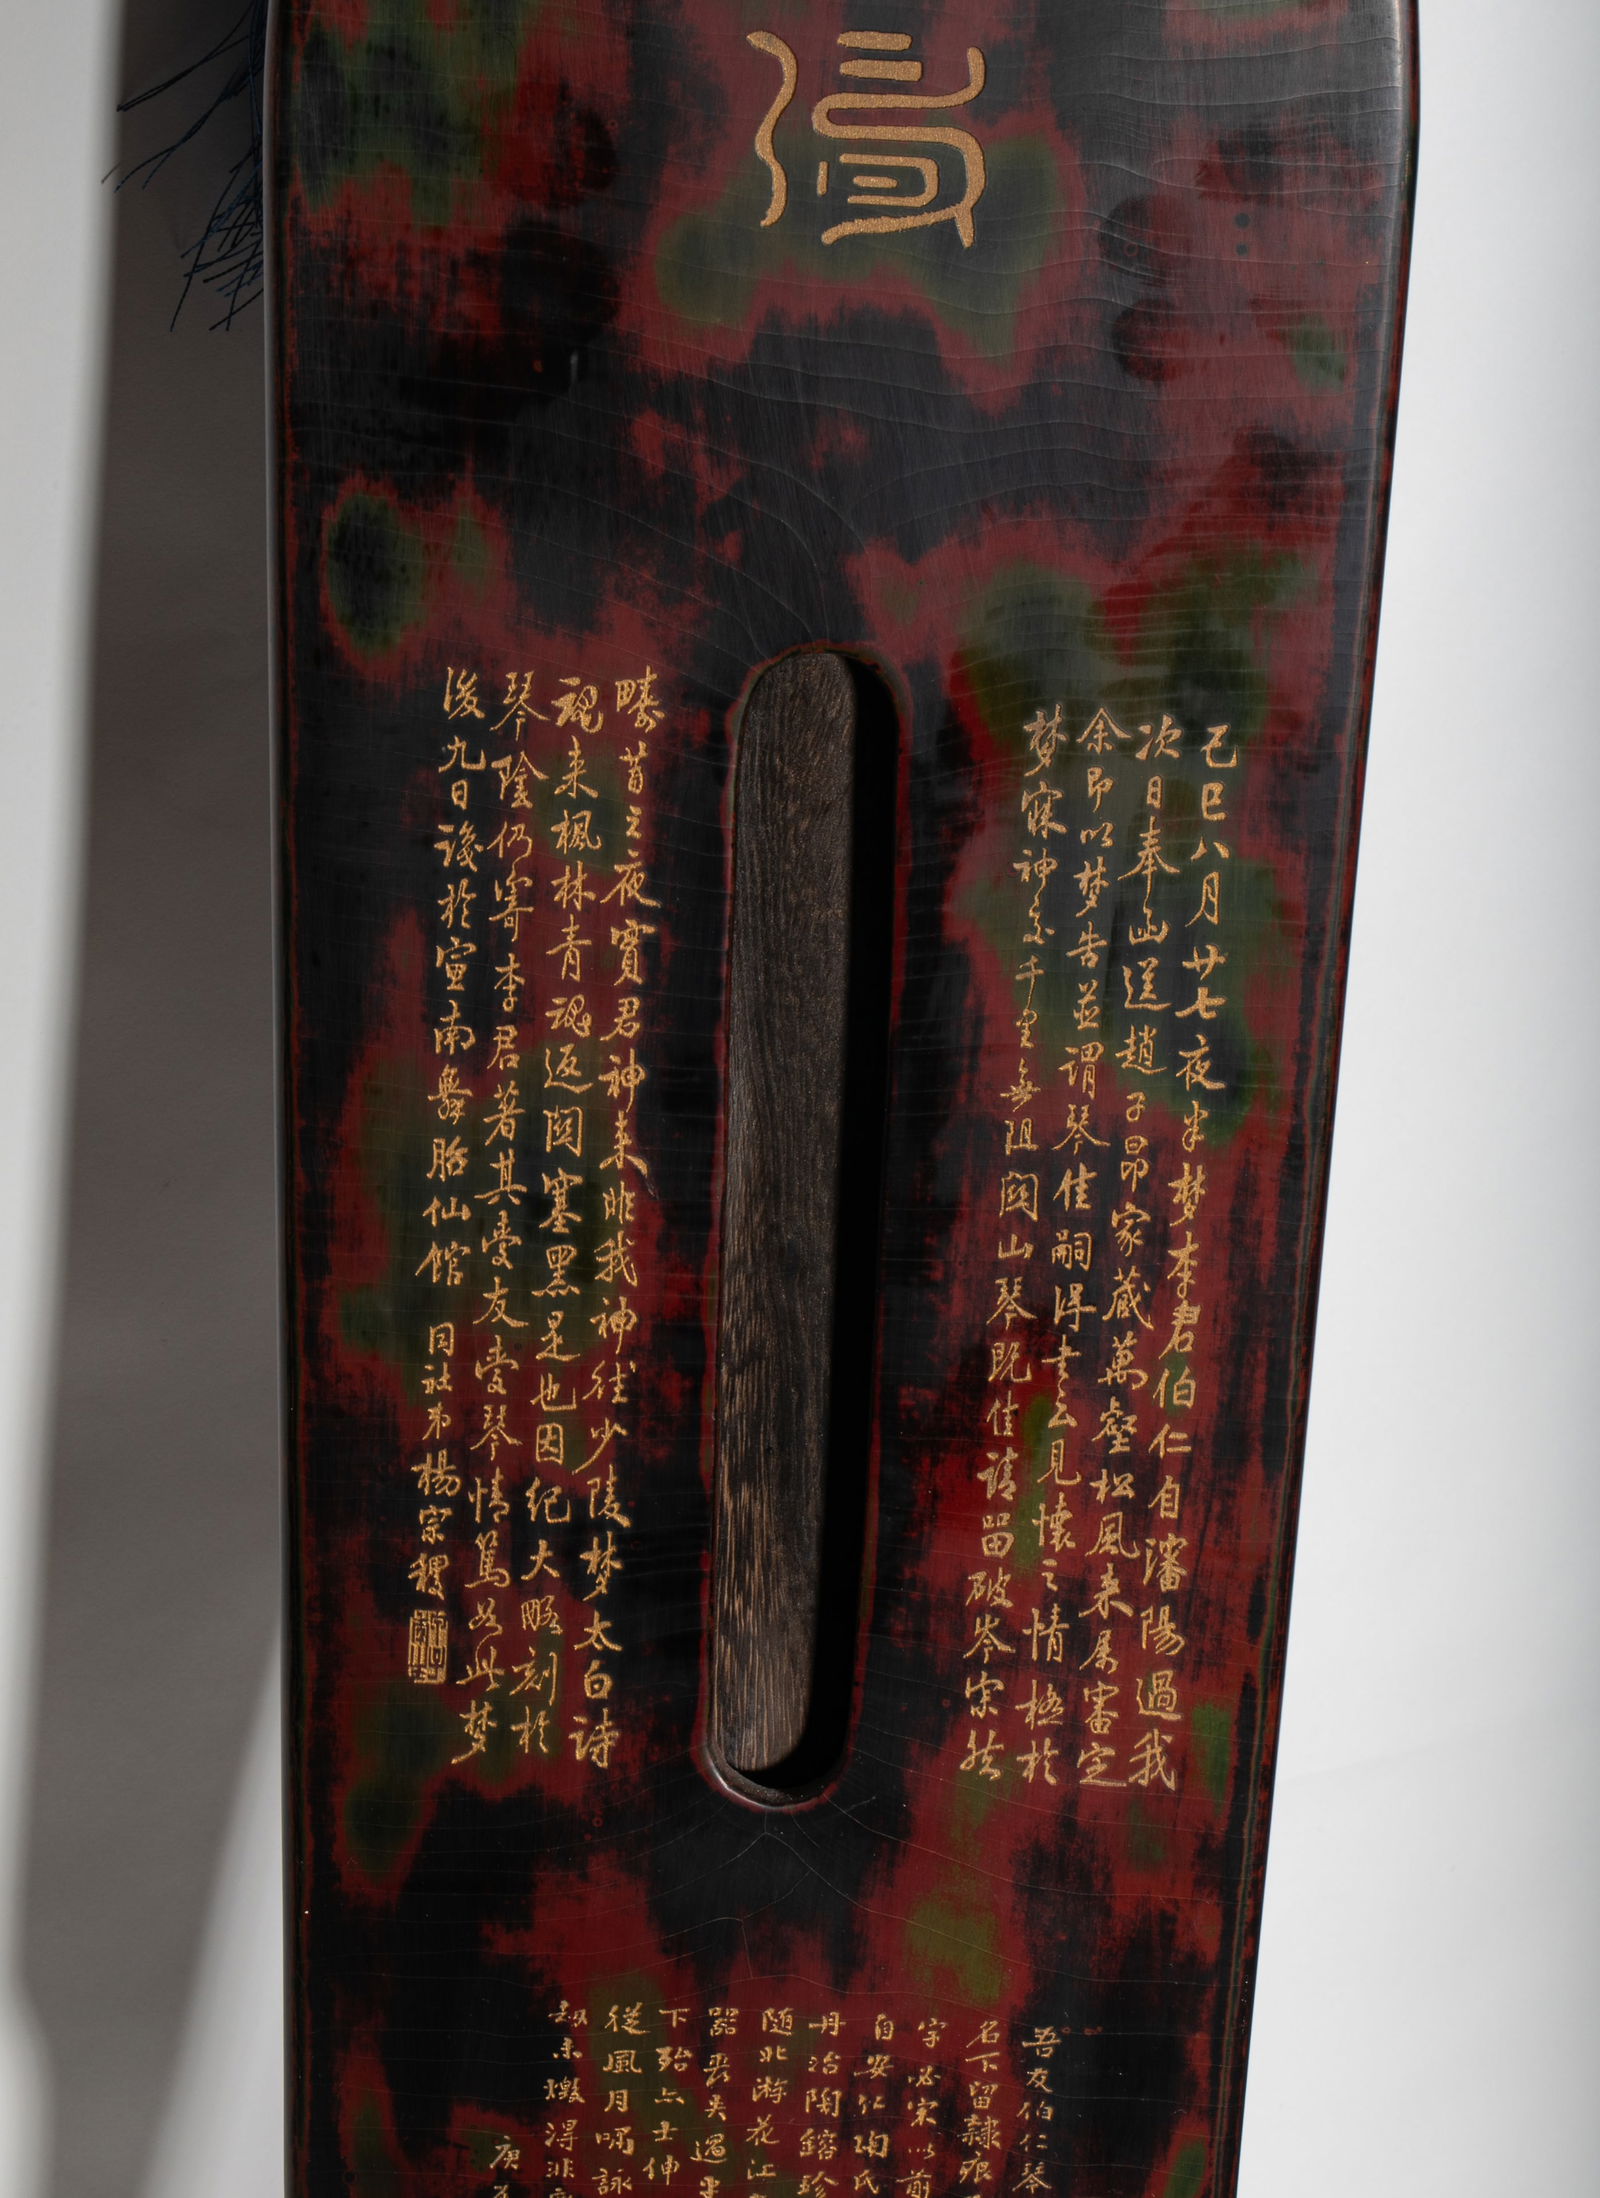 己巳八月廿七夜半梦李君伯仁自瀋陽過我
次日奉函送趙子昂家蔵萬壑松風来属審定
余即以梦告並謂琴佳嗣得書云見懷之情極於
梦寐神交千里無阻関山琴既佳請留破岑宗然
疇昔之夜實君神来非我神往少陵梦太白诗
魂来楓林青魂返関塞黑是也因纪大略刻於
琴陰仍寄李君著其愛友愛琴情篤如此梦
後九日識於宣南舞胎仙馆 同社弟楊宗稷
吾友伯仁琴
名下留隷痕
字必宋以前
自安仁陶氏
丹冶陶鎔珍
随北游花江
器丧失遇
下殆六士伸
從風月嘱詠
劫未燬得非
庚